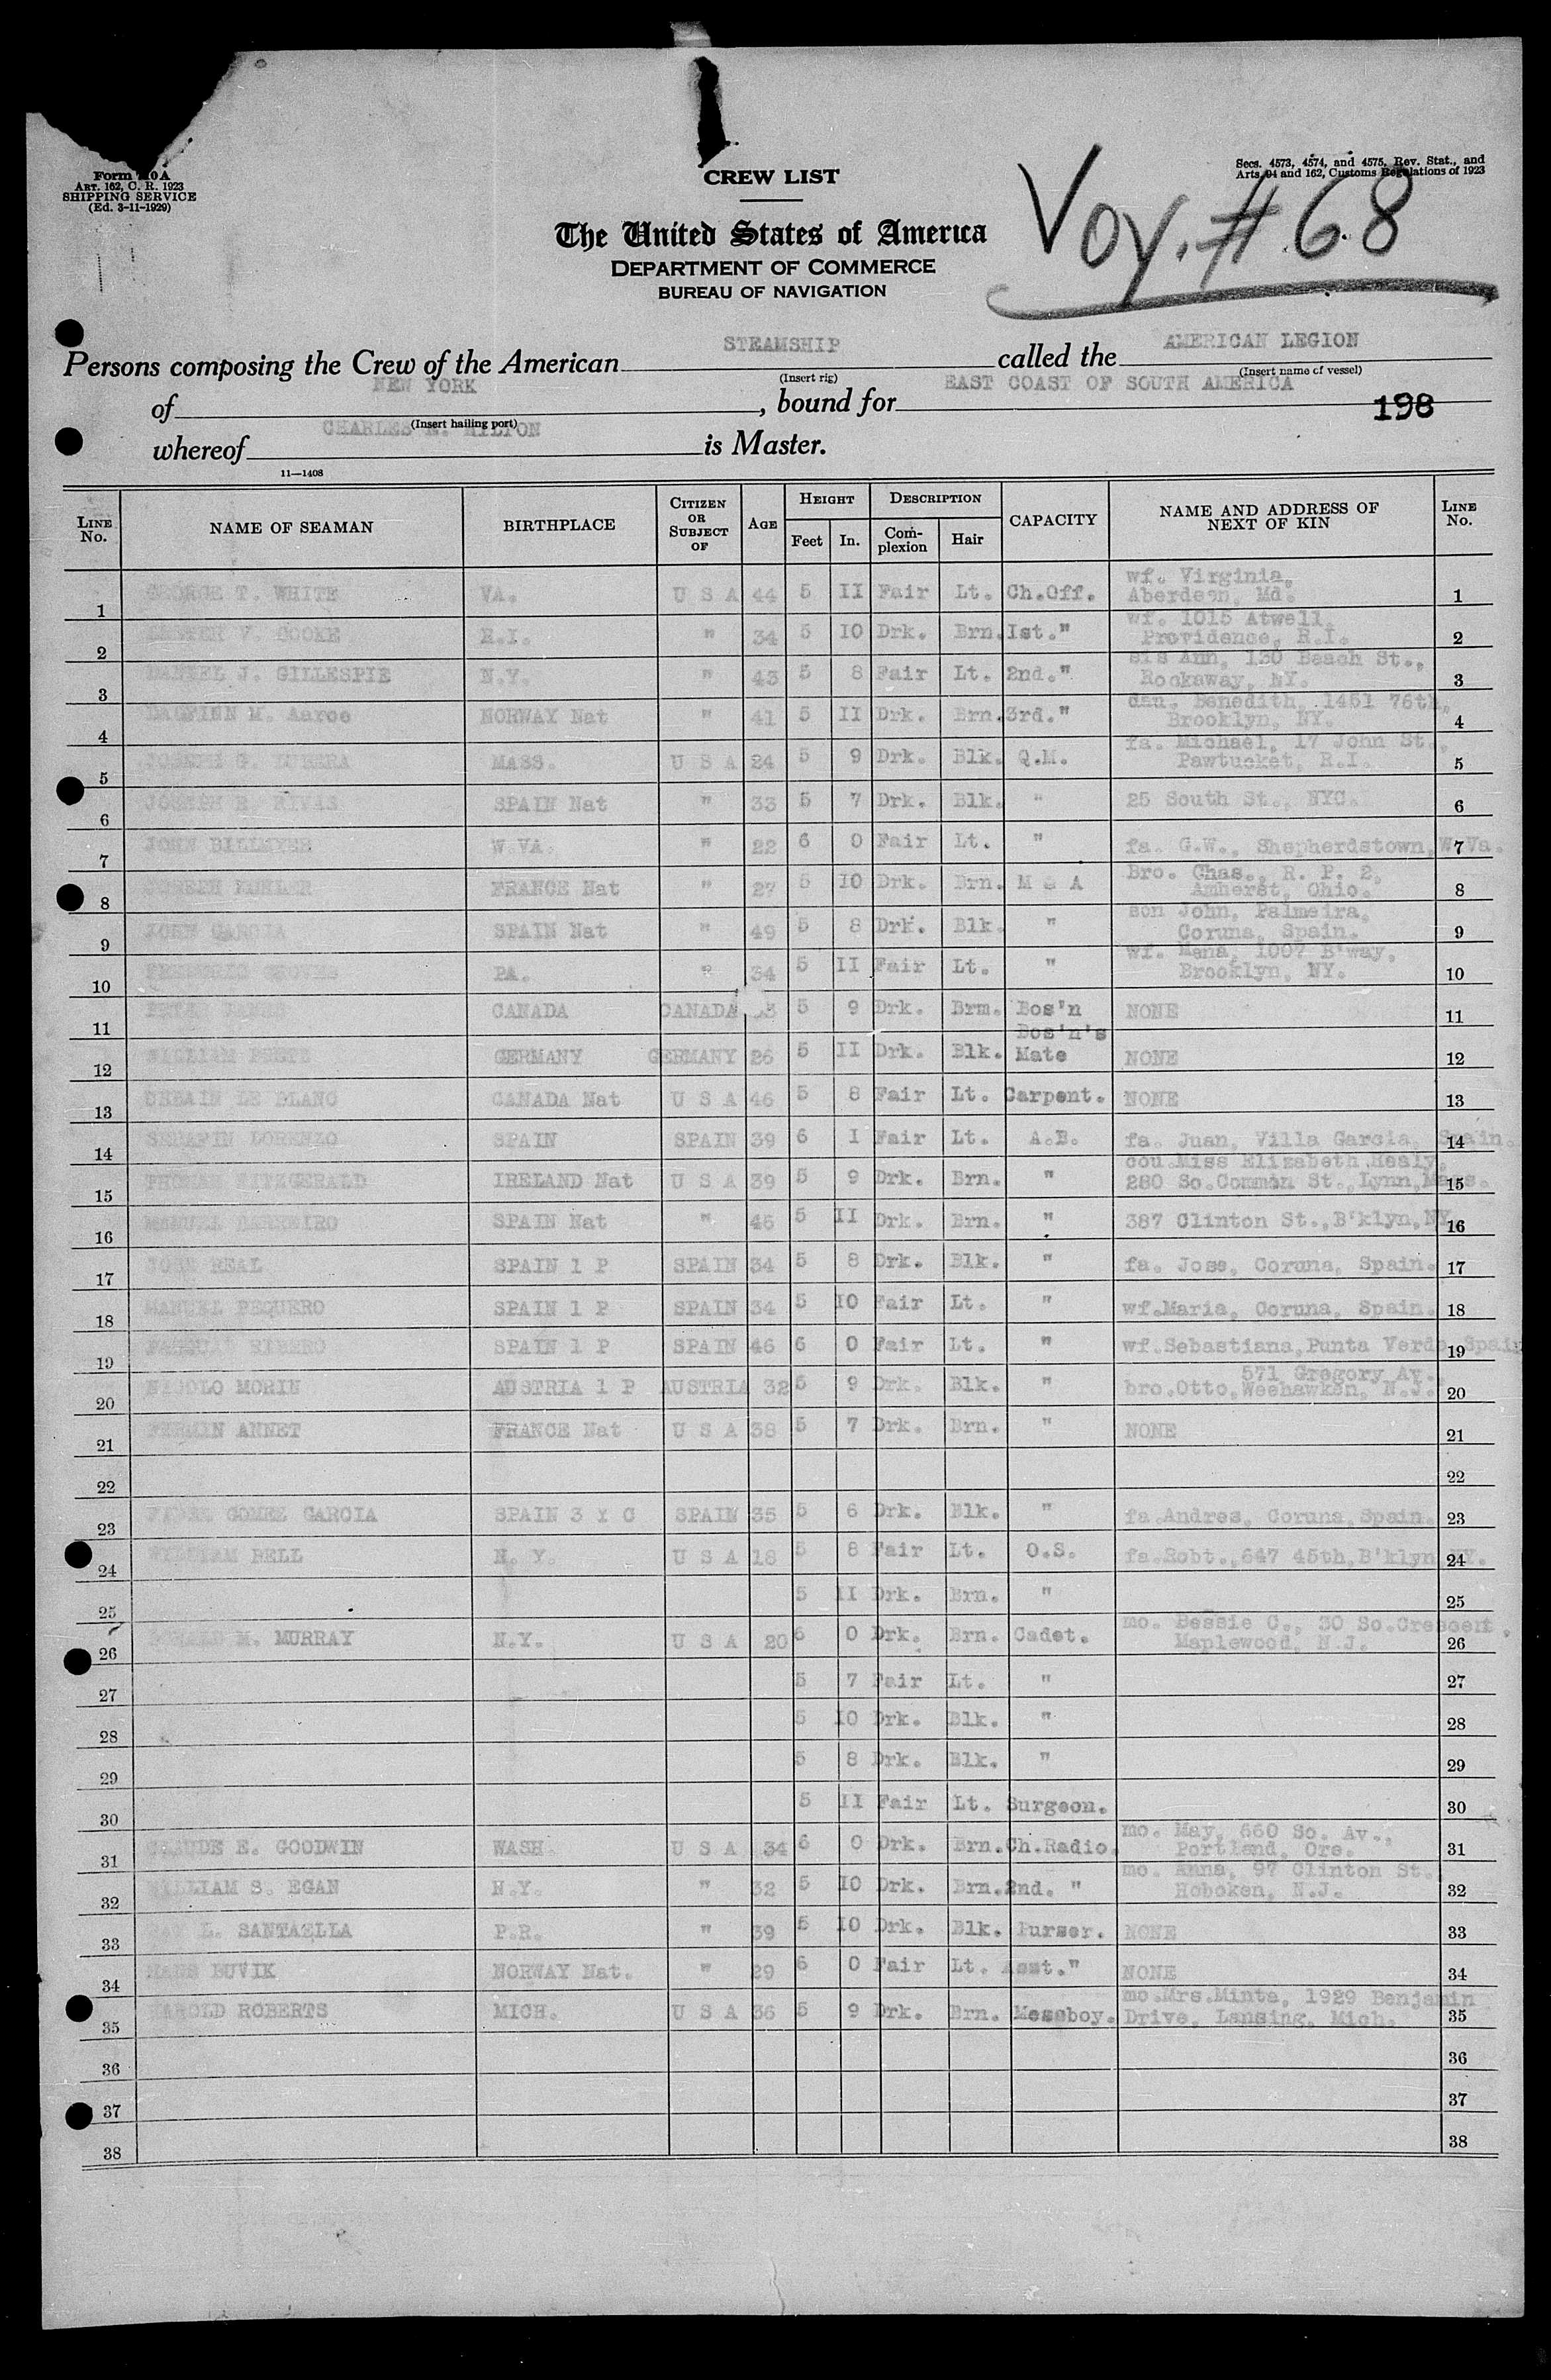 Form 710 A
ART. 162, C. R. 1923
SHIPPING SERVICE
(Ed. 3-11-1929)
Secs. 4573, 4574, and 4575, Rev. Stat., and
Arts. 94 and 162, Customs Regulations of 1923
CREW LIST
Voy. # 68
The United States of America
DEPARTMENT OF COMMERCE
BUREAU OF NAVIGATION
Persons composing the Crew of the American STEAMSHIP called the AMERICAN LEGION
(Insert rig) (Insert name of vessel)
of NEW YORK, bound for EAST COAST OF SOUTH AMERICA 198
(Insert hailing port)
whereof CHARLES N. HILTON is Master.
11—1408
LINE No. NAME OF SEAMAN BIRTHPLACE CITIZEN OR SUBJECT OF AGE HEIGHT Feet In. DESCRIPTION Complexion Hair CAPACITY NAME AND ADDRESS OF NEXT OF KIN LINE No.
1 GEORGE T. WHITE VA. U S A 44 5 II Fair Lt. Ch.Off. wf. Virginia, Aberdeen, Md. 1
2 V. COOKE R.I. " 34 5 IO Drk. Brn. Ist." wf. 1015 Atwell, Providence, R.I. 2
3 DANIEL J. GILLESPIE N.Y. " 43 5 8 Fair Lt. 2nd." sis Ann, 130 Beach St., Rockaway, NY. 3
4 DAGFINN M. Aaroe NORWAY Nat " 41 5 II Drk. Brn. 3rd." dau. Benedith, 1451 76th, Brooklyn, NY. 4
5 JOSEPH G. MASS. U S A 24 5 9 Drk. Blk. Q.M. fa. Michael, 17 John St., Pawtucket, R.I. 5
6 JOSEPH R. RIVAS SPAIN Nat " 33 5 7 Drk. Blk. " 25 South St., NYC. 6
7 JOHN BILLMYER W.VA. " 22 6 0 Fair Lt. " fa. G.W., Shepherdstown, W.Va. 7
8 JOSEPH FRANCE Nat " 27 5 IO Drk. Brn. M @ A Bro. Chas., R. P. 2, Amherst, Ohio. 8
9 JOSE GARCIA SPAIN Nat " 49 5 8 Drk. Blk. " son John, Palmeira, Coruna, Spain. 9
10 PA. " 34 5 II Fair Lt. " wf. Mana, 1007 B'way, Brooklyn, NY. 10
11 CANADA CANADA 5 9 Drk. Brm. Bos'n NONE 11
12 WILLIAM GERMANY GERMANY 26 5 II Drk. Blk. Bos'n's Mate NONE 12
13 URBAIN LE BLANC CANADA Nat U S A 46 5 8 Fair Lt. Carpent. NONE 13
14 SERAFIN LORENZO SPAIN SPAIN 39 6 I Fair Lt. A.B. fa. Juan, Villa Garcia, Spain. 14
15 THOMAS FITZGERALD IRELAND Nat U S A 39 5 9 Drk. Brn. " cou.Miss Elizabeth Healy, 280 So.Common St., Lynn, Mass. 15
16 MANUEL BARREIRO SPAIN Nat " 45 5 II Drk. Brn. " 387 Clinton St., B'klyn, NY 16
17 JOSE REAL SPAIN 1 P SPAIN 34 5 8 Drk. Blk. " fa. Jose, Coruna, Spain. 17
18 MANUEL PEQUERO SPAIN 1 P SPAIN 34 5 IO Fair Lt. " wf.Maria, Coruna, Spain. 18
19 PASCUAL RIBERO SPAIN 1 P SPAIN 46 6 0 Fair Lt. " wf.Sebastiana, Punta Verde, Spain 19
20 NICOLO MORIN AUSTRIA 1 P AUSTRIA 32 5 9 Drk. Blk. " bro.Otto, 571 Gregory Av. Weehawken, N.J. 20
21 FERMIN ANNET FRANCE Nat U S A 38 5 7 Drk. Brn. " NONE 21
22 22
23 GOMEZ GARCIA SPAIN 3 X C SPAIN 35 5 6 Drk. Blk. " fa.Andres, Coruna, Spain. 23
24 WILLIAM BELL N. Y. U S A 18 5 8 Fair Lt. O.S. fa.Robt., 647 45th, B'klyn, NY. 24
25 5 II Drk. Brn. " 25
26 DONALD M. MURRAY N.Y. U S A 20 6 0 Drk. Brn. Cadet. mo. Bessie C., 30 So.Crescent, Maplewood, N.J. 26
27 5 7 Fair Lt. " 27
28 5 IO Drk. Blk. " 28
29 5 8 Drk. Blk. " 29
30 5 II Fair Lt. Surgeon. 30
31 CLAUDE E. GOODWIN WASH. U S A 34 6 0 Drk. Brn. Ch.Radio. mo. May, 660 So. Av., Portland, Ore. 31
32 WILLIAM S. EGAN N.Y. " 32 5 IO Drk. Brn. 2nd. " mo. Anna, 97 Clinton St. Hoboken, N.J. 32
33 L. SANTAELLA P.R. " 39 5 IO Drk. Blk. Purser. NONE 33
34 HANS BUVIK NORWAY Nat. " 29 6 0 Fair Lt. Asst." NONE 34
35 HAROLD ROBERTS MICH. U S A 36 5 9 Drk. Brn. Messboy. mo.Mrs.Minta, 1929 Benjamin Drive, Lansing, Mich. 35
36 36
37 37
38 38